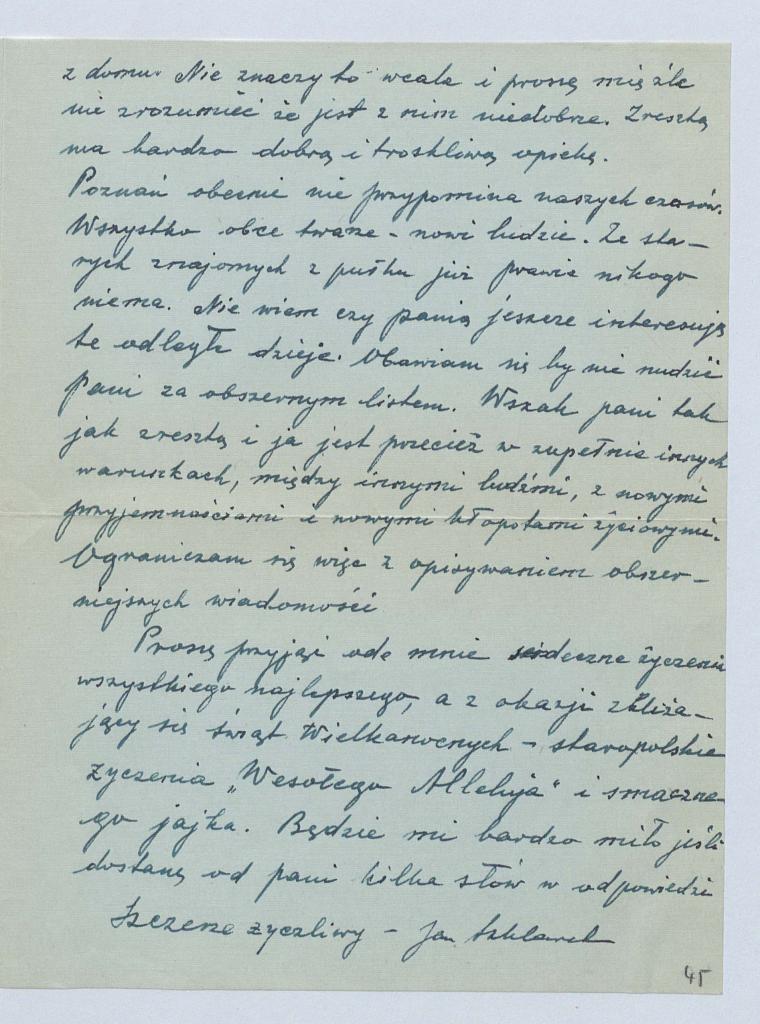 z domu. Nie znaczy to wcale i proszę mię źle
nie zrozumieć że jest z nim niedobrze. Zresztą
ma bardzo dobrą i troskliwą opiekę.
Poznań obecnie nie przypomina naszych czasów.
Wszystko obce twarze - nowi ludzie. Ze sta-
rych znajomych z pułku już prawie nikogo
niema. Nie wiem czy panią jeszcze interesują
te odległe dzieje. Obawiam się by nie nudzić
pani za obszernym listem. Wszak pani tak
jak zresztą i ja jest przecież w zupełnie innych
warunkach, między innymi ludźmi, z nowymi
przyjemnościami i nowymi kłopotami życiowymi.
Ograniczam się więc z opisywaniem obszer-
niejszych wiadomości
Proszę przyjąć ode mnie serdeczne życzenia
wszystkiego najlepszego, a z okazji zbliża-
jący się świąt Wielkanocnych - staropolskie
życzenia „Wesołego Alleluja" i smaczne-
go jajka. Będzie mi bardzo miło jeśli
dostanę od pani kilka słów w odpowiedzi
Szczerze życzliwy - Jan Szklarek
45